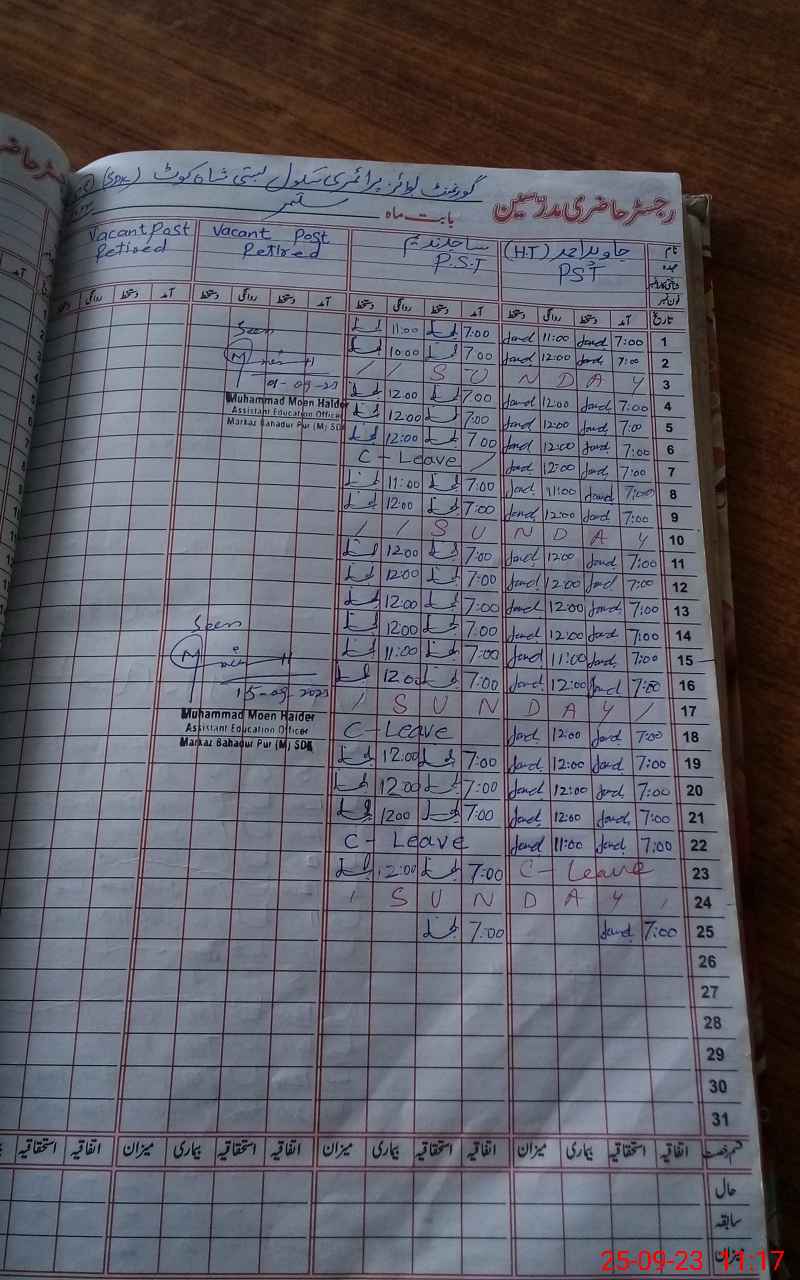 رجسٹر حاضری مدرسین
گورنمنٹ بوائز پرائمری سکول بستی شاہ کوٹ (SDK)
بابت ماہ ستمبر
نام جاوید احمد (H.T) ساجد ندیم Vacant Post Vacant Post
عہدہ PST P.S.T Retired Retired
تاریخ آمد دستخط روانگی دستخط آمد دستخط روانگی دستخط آمد دستخط روانگی دستخط آمد دستخط روانگی دستخط
11:00 7:00 11:00 7:00 1
10:00 7:00 12:00 7:00 2
/ / S U N D A Y 3
12:00 7:00 12:00 7:00 4
12:00 7:00 12:00 7:00 5
12:00 7:00 12:00 7:00 6
C-Leave / 12:00 7:00 7
11:00 7:00 11:00 7:00 8
12:00 7:00 12:00 7:00 9
/ / S U N D A Y 10
12:00 7:00 12:00 7:00 11
12:00 7:00 12:00 7:00 12
12:00 7:00 12:00 7:00 13
12:00 7:00 12:00 7:00 14
11:00 7:00 11:00 7:00 15
12:00 7:00 12:00 7:00 16
/ S U N D A Y / 17
C-Leave 12:00 7:00 18
12:00 7:00 12:00 7:00 19
12:00 7:00 12:00 7:00 20
1200 7:00 12:00 7:00 21
C-Leave 11:00 7:00 22
12:00 7:00 C-Leave 23
S U N D A Y 24
7:00 7:00 25
26
27
28
29
30
31
Seen
01-09-23
Muhammad Moen Haider
Assistant Education Officer
Markaz Bahadur Pur (M) SDK
Seen
15-09-2023
Muhammad Moen Haider
Assistant Education Officer
Markaz Bahadur Pur (M) SDK
قسم رخصت اتفاقیہ استحقاقیہ بیماری میزان اتفاقیہ استحقاقیہ بیماری میزان اتفاقیہ استحقاقیہ بیماری میزان اتفاقیہ استحقاقیہ
حال
سابقہ
میزان
25-09-23 11:17